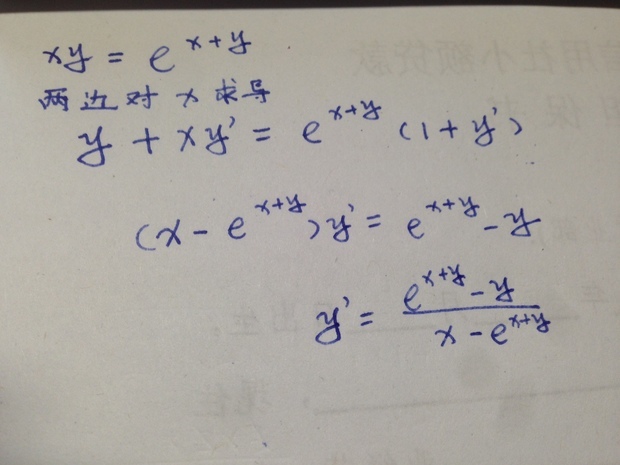 xy = e^{x+y}
两边对 x 求导
y + xy' = e^{x+y} (1 + y')
(x - e^{x+y}) y' = e^{x+y} - y
y' = \frac{e^{x+y} - y}{x - e^{x+y}}